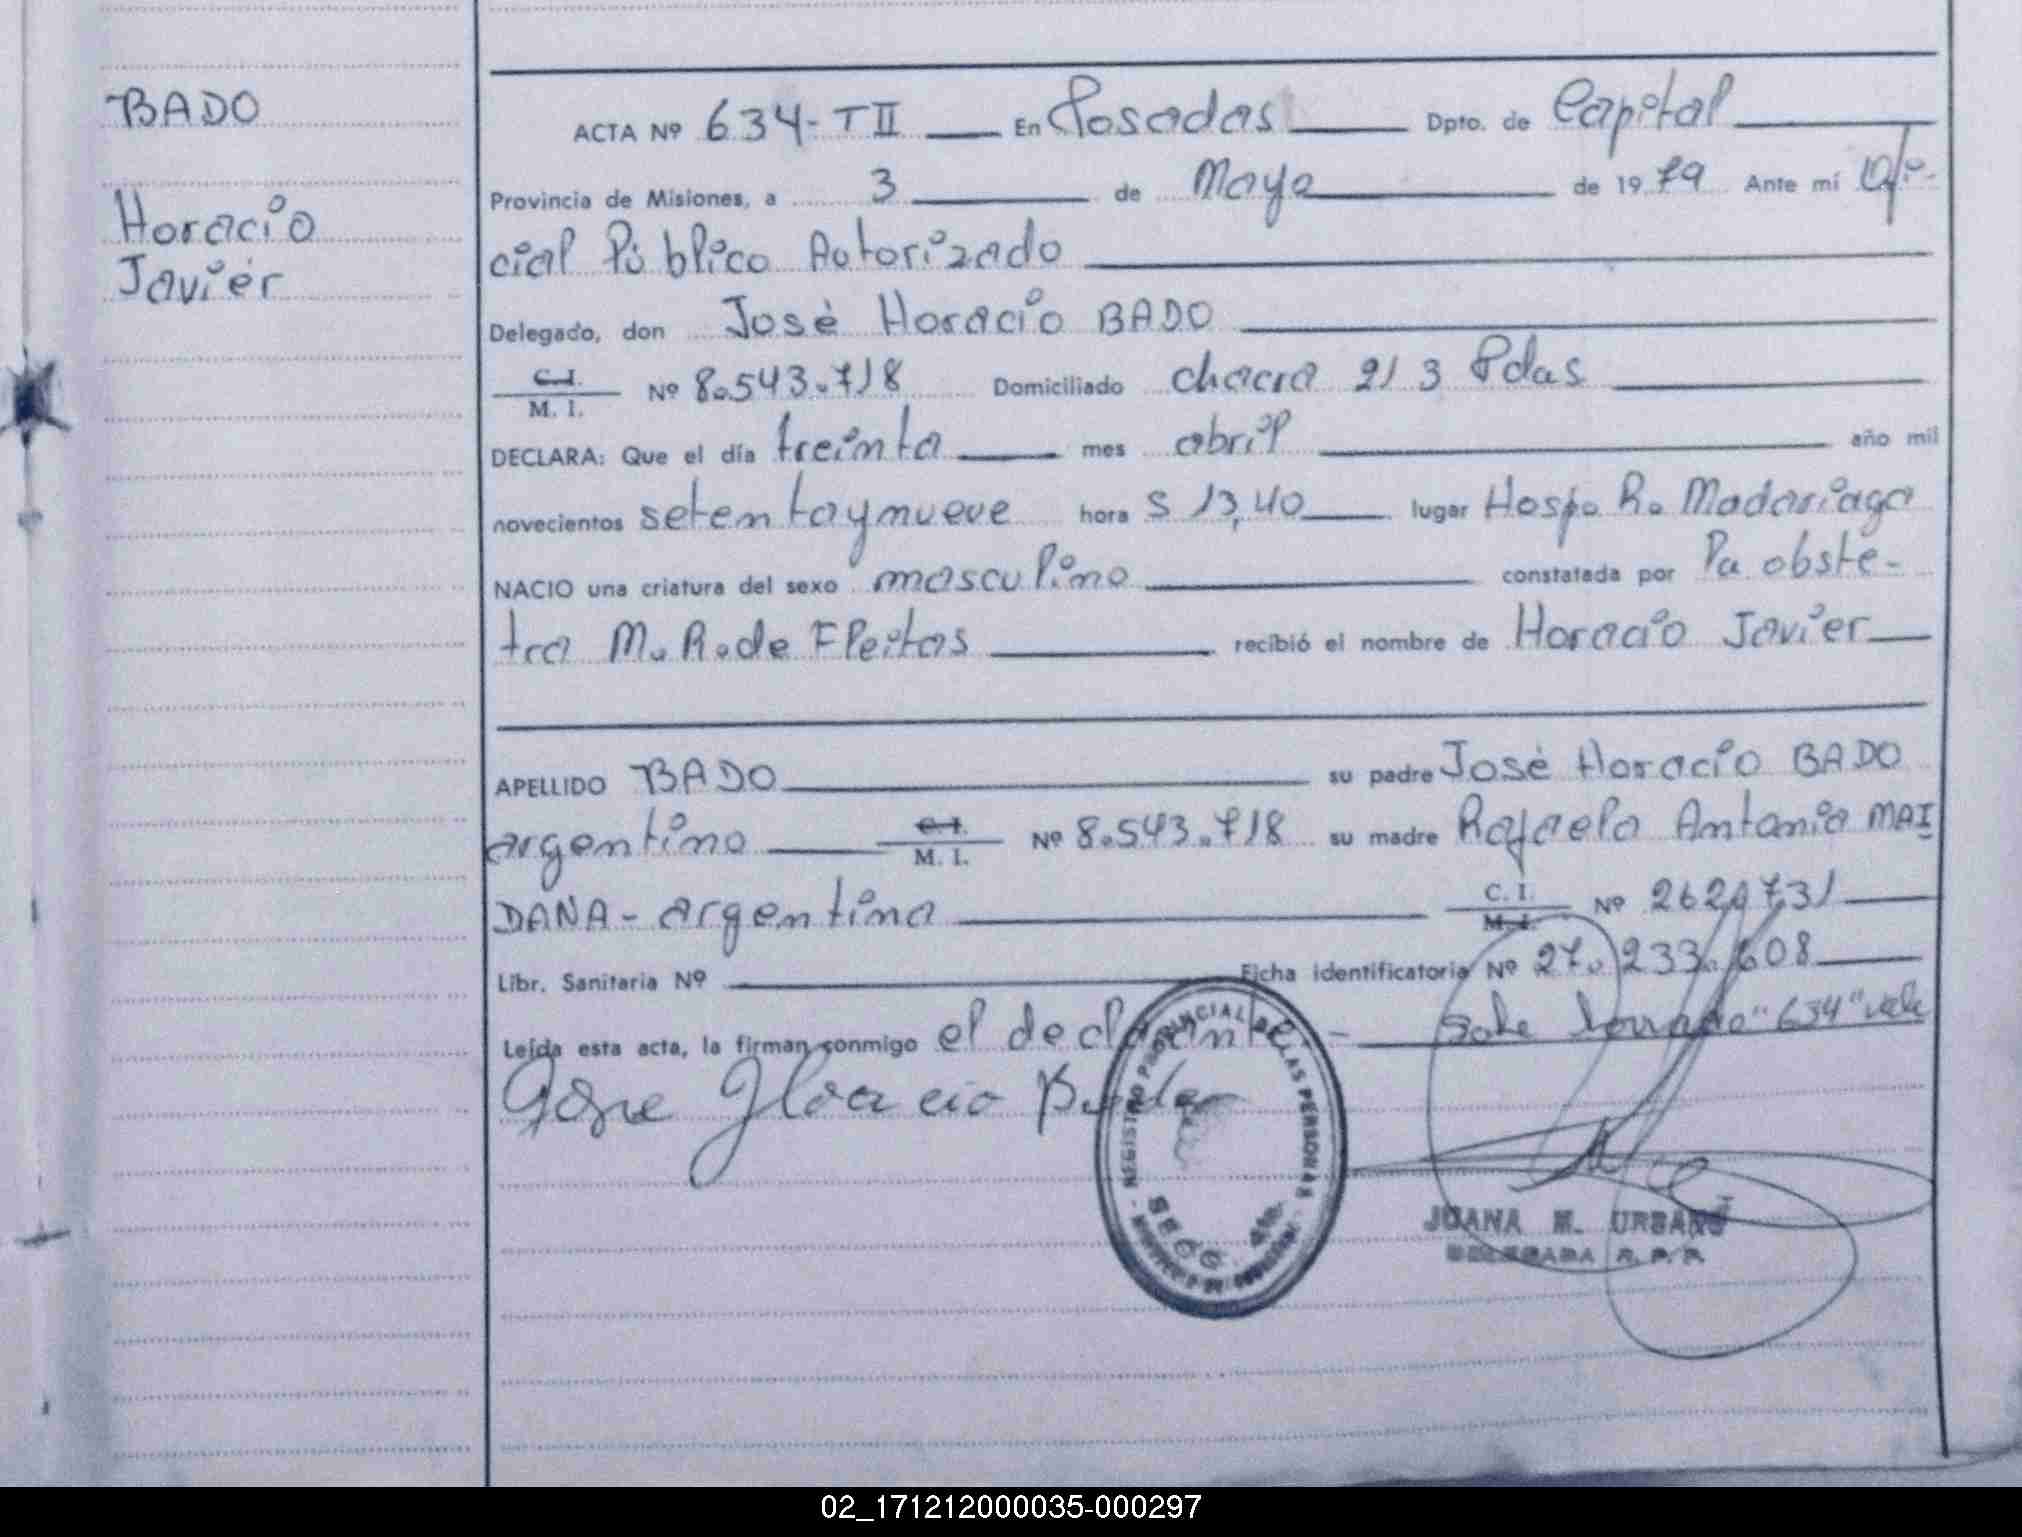 BADO
Horacio
Javier
ACTA Nº 634-TII En Posadas Dpto. de Capital
Provincia de Misiones, a 3 de Mayo de 1979 Ante mí Ofi-
cial Público Autorizado
Delegado, don José Horacio BADO
C.I. M. I. Nº 8.543.718 Domiciliado chacra 213 Pdas
DECLARA: Que el día treinta mes abril año mil
novecientos setentaynueve hora s 13,40 lugar Hosp. R. Madariaga
NACIO una criatura del sexo masculino constatada por la obsté-
tra M. R. de Fleitas recibió el nombre de Horacio Javier
APELLIDO BADO su padre José Horacio BADO
argentino C.I. M. I. Nº 8.543.718 su madre Rafaela Antonia MAI
DANA - argentina C. I. M. I. Nº 262.731
Libr. Sanitaria Nº Ficha identificatoria Nº 27.233.608
Leída esta acta, la firman conmigo el declarante - sobre borrado "634" vale
Jose Horacio Bado
REGISTRO PROVINCIAL DE LAS PERSONAS
JUANA M. URBANO
DELEGADA R. P. P.
02_171212000035-000297